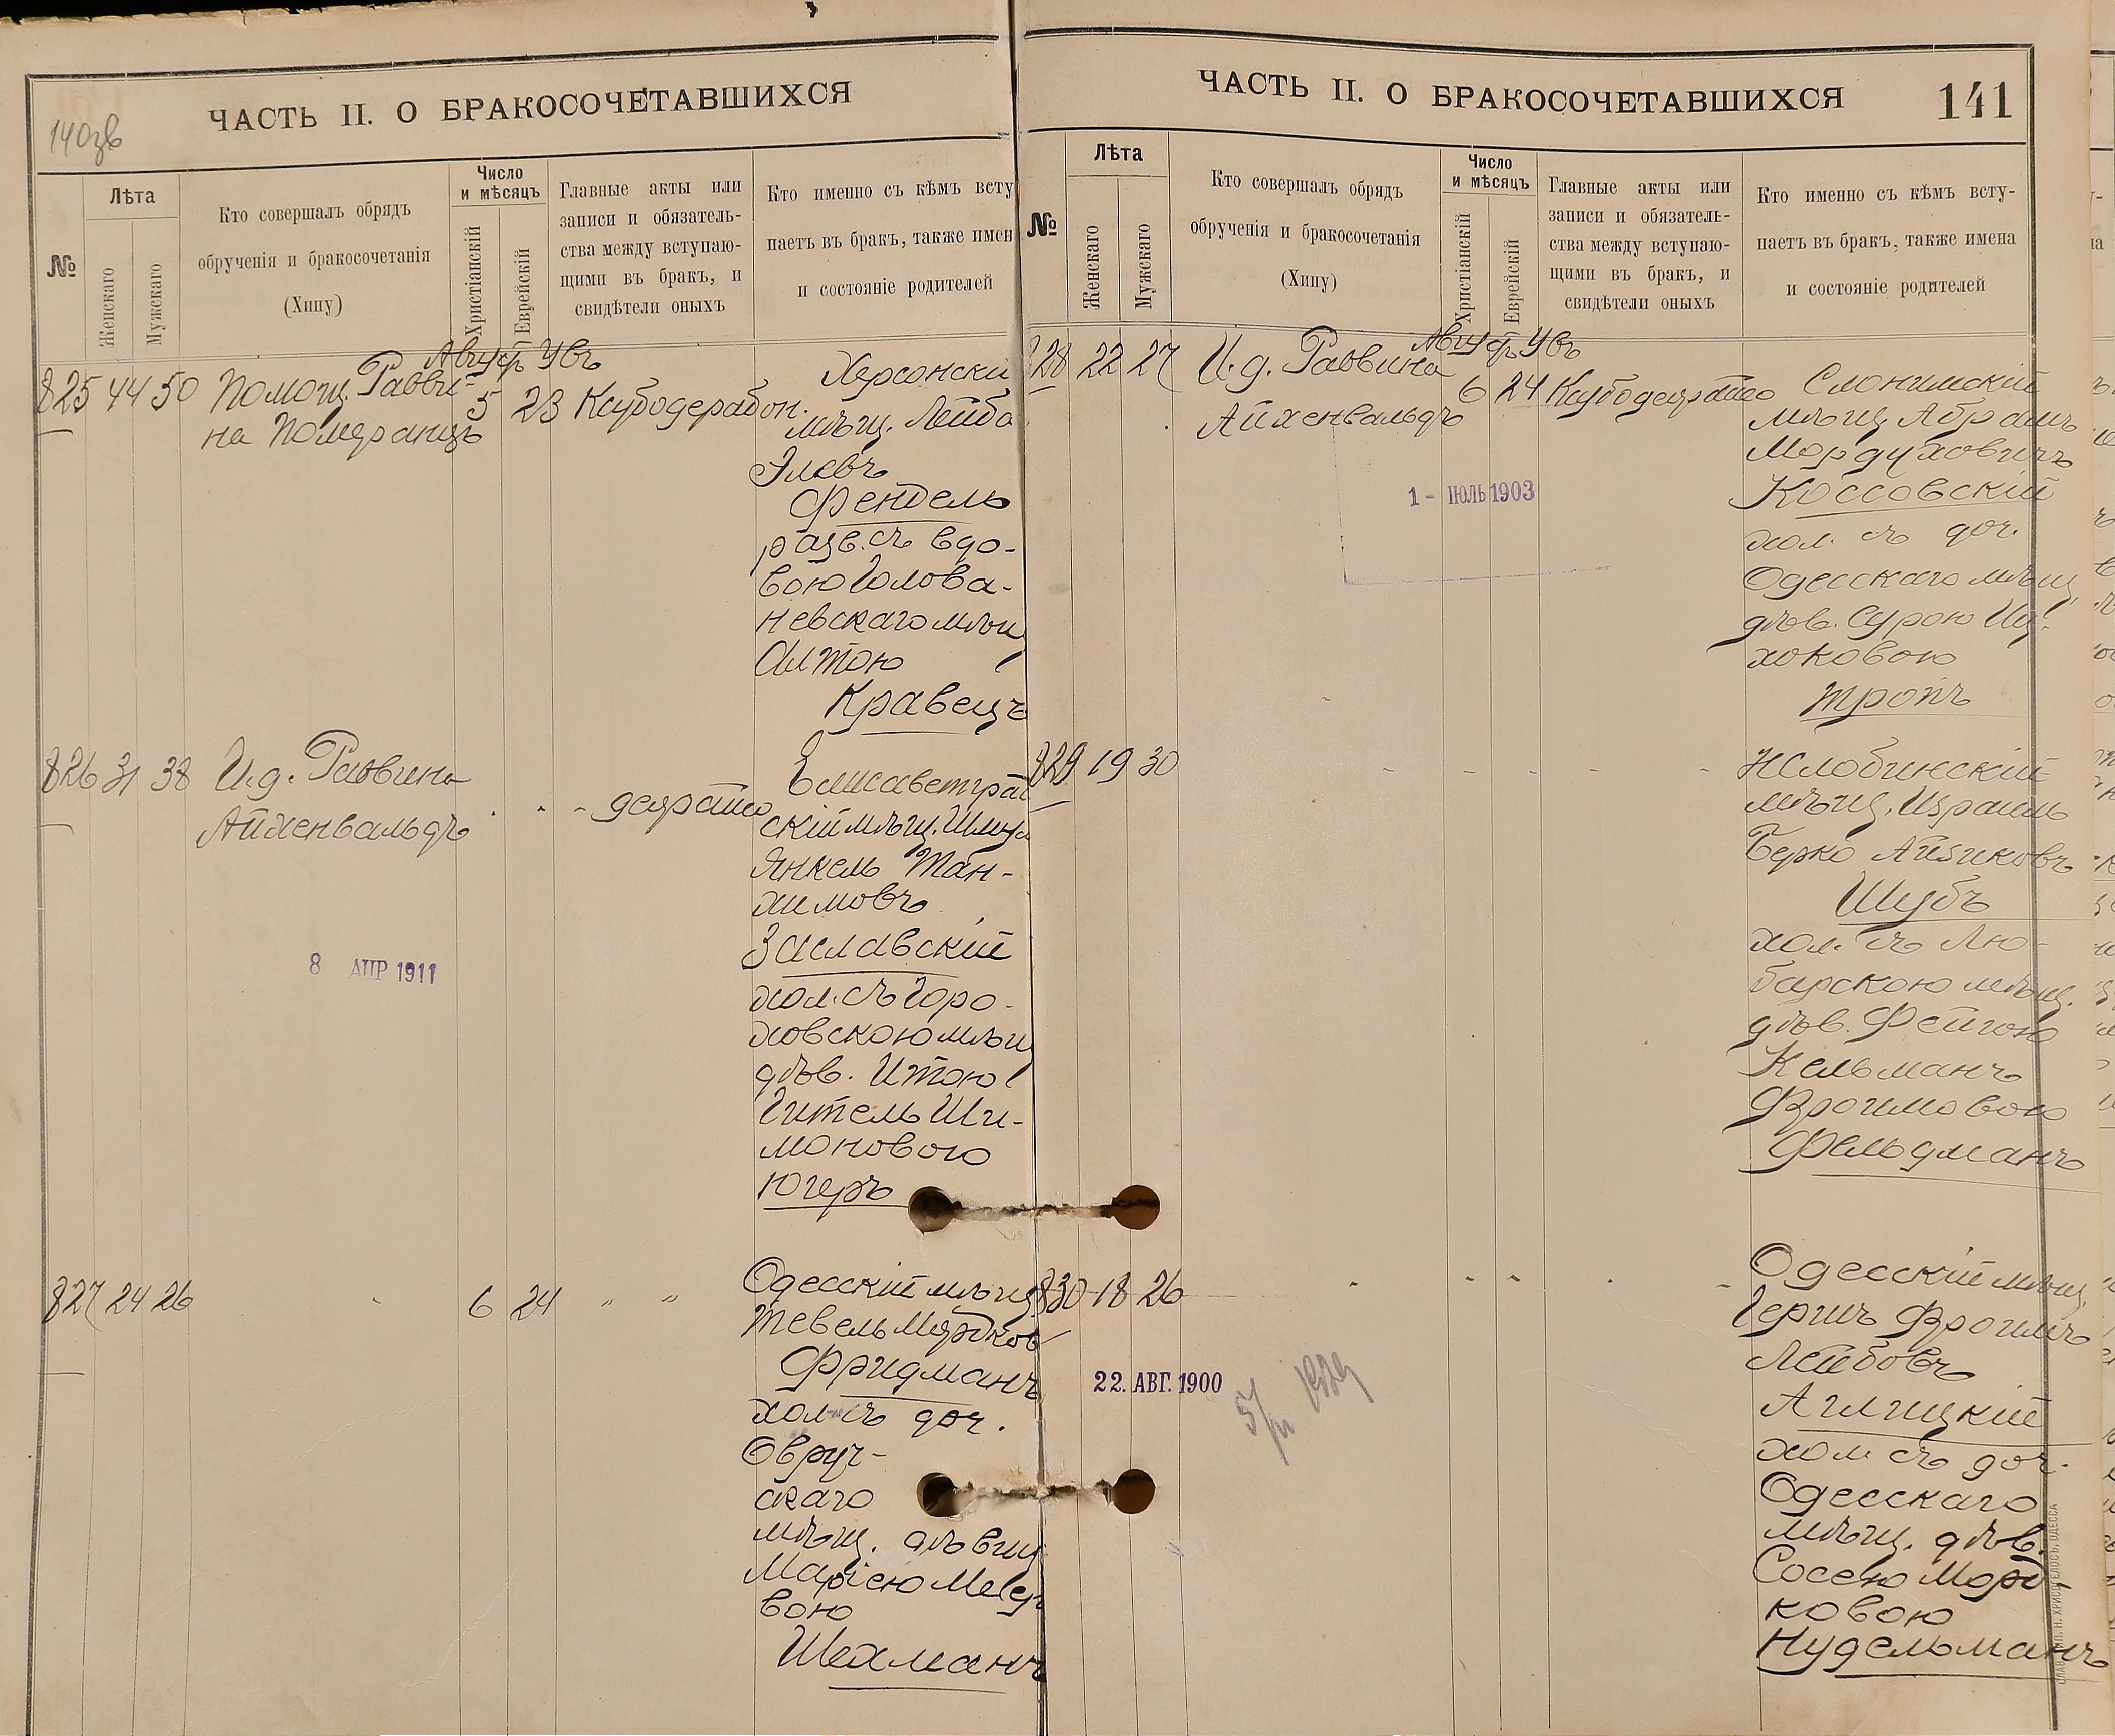 140зв
ЧАСТЬ II. О БРАКОСОЧЕТАВШИХСЯ
№
Лѣта
Женскаго
Мужскаго
Кто совершалъ обрядъ
обрученія и бракосочетанія
(Хипу)
Число
и мѣсяцъ
Христіанскій
Еврейскій
Главные акты или
записи и обязатель-
ства между вступаю-
щими въ бракъ, и
свидѣтели оныхъ
Кто именно съ кѣмъ всту
паетъ въ бракъ, также имен
и состояніе родителей
825 44 50 Помощ. Равви-
на Померанцъ
5 23
Херсонски
мѣщ. Лейба
Элевъ
Фендель
разв. съ вдо-
вою Голова-
невскаго мѣщ
Алтою
Кравецъ
826 31 38 И.д. Раввина
Айхенвальдъ
Елисаветград
скій мѣщ. Шмул
Янкель Тан-
химовъ
Заславскій
хол. съ Горо-
ховскою мѣщ
дѣв. Итою
Гитель Ши-
моновою
Югеръ
8 АПР 1911
827 24 26 6 24 " "
Одесскій мѣщ
Тевель Мордков
Фридманъ
хол. съ доч.
Овруч-
скаго
мѣщ. дѣвиц
Маріею
вою
Шехманъ
ЧАСТЬ II. О БРАКОСОЧЕТАВШИХСЯ
141
№
Лѣта
Женскаго
Мужскаго
Кто совершалъ обрядъ
обрученія и бракосочетанія
(Хипу)
Число
и мѣсяцъ
Христіанскій
Еврейскій
Главные акты или
записи и обязатель-
ства между вступаю-
щими въ бракъ, и
свидѣтели оныхъ
Кто именно съ кѣмъ всту-
паетъ въ бракъ, также имена
и состояніе родителей
828 22 27 И.д. Раввина
Айхенвальдъ
6 24
Слонимскій
мѣщ. Абрамъ
Мордуховичъ
Коссовскій
хол. съ доч.
Одесскаго мѣщ
дѣв. Сурою Иц-
хоковою
Тропъ
1 - ІЮЛЬ 1903
829 19 30
мѣщ. Израиль
Берко Айзиковъ
Шубъ
хол. съ Лю-
барскою мѣщ.
дѣв. Фейгою
Кельманъ
Фроимовою
Фельдманъ
830 18 26
Одесскій мѣщ.
Гершъ Фроимъ
Лейбовъ
Аглицкій
хол. съ доч.
Одесскаго
мѣщ. дѣв.
Сосею Морд-
ковою
Нудельманъ
22. АВГ. 1900